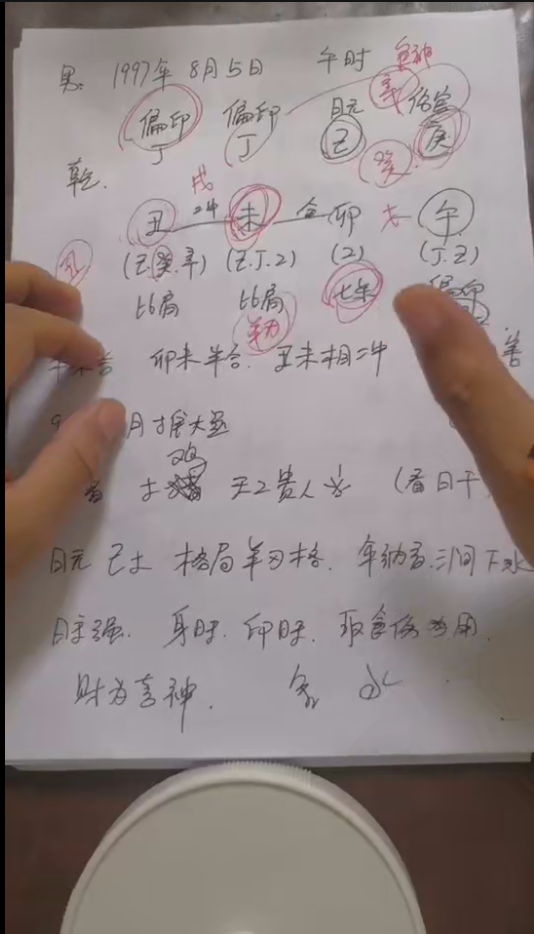 男: 1997年 8月5日 午时 食神
偏印 偏印 日元 伤官
辛
丁 丁 己 庚
癸
乾. 戌
丑 冲 未 合 卯 午
(己.癸.辛) (己.丁.乙) (乙) (丁.己)
比肩 比肩 七杀
羊刃
卯未半合. 丑未相冲
月 大运
鸡
土 天乙贵人 (看日干
日元 己土 格局羊刃格. 年纳音:涧下水
日主强. 身旺. 印旺. 取食伤为用.
财为喜神. 金 水